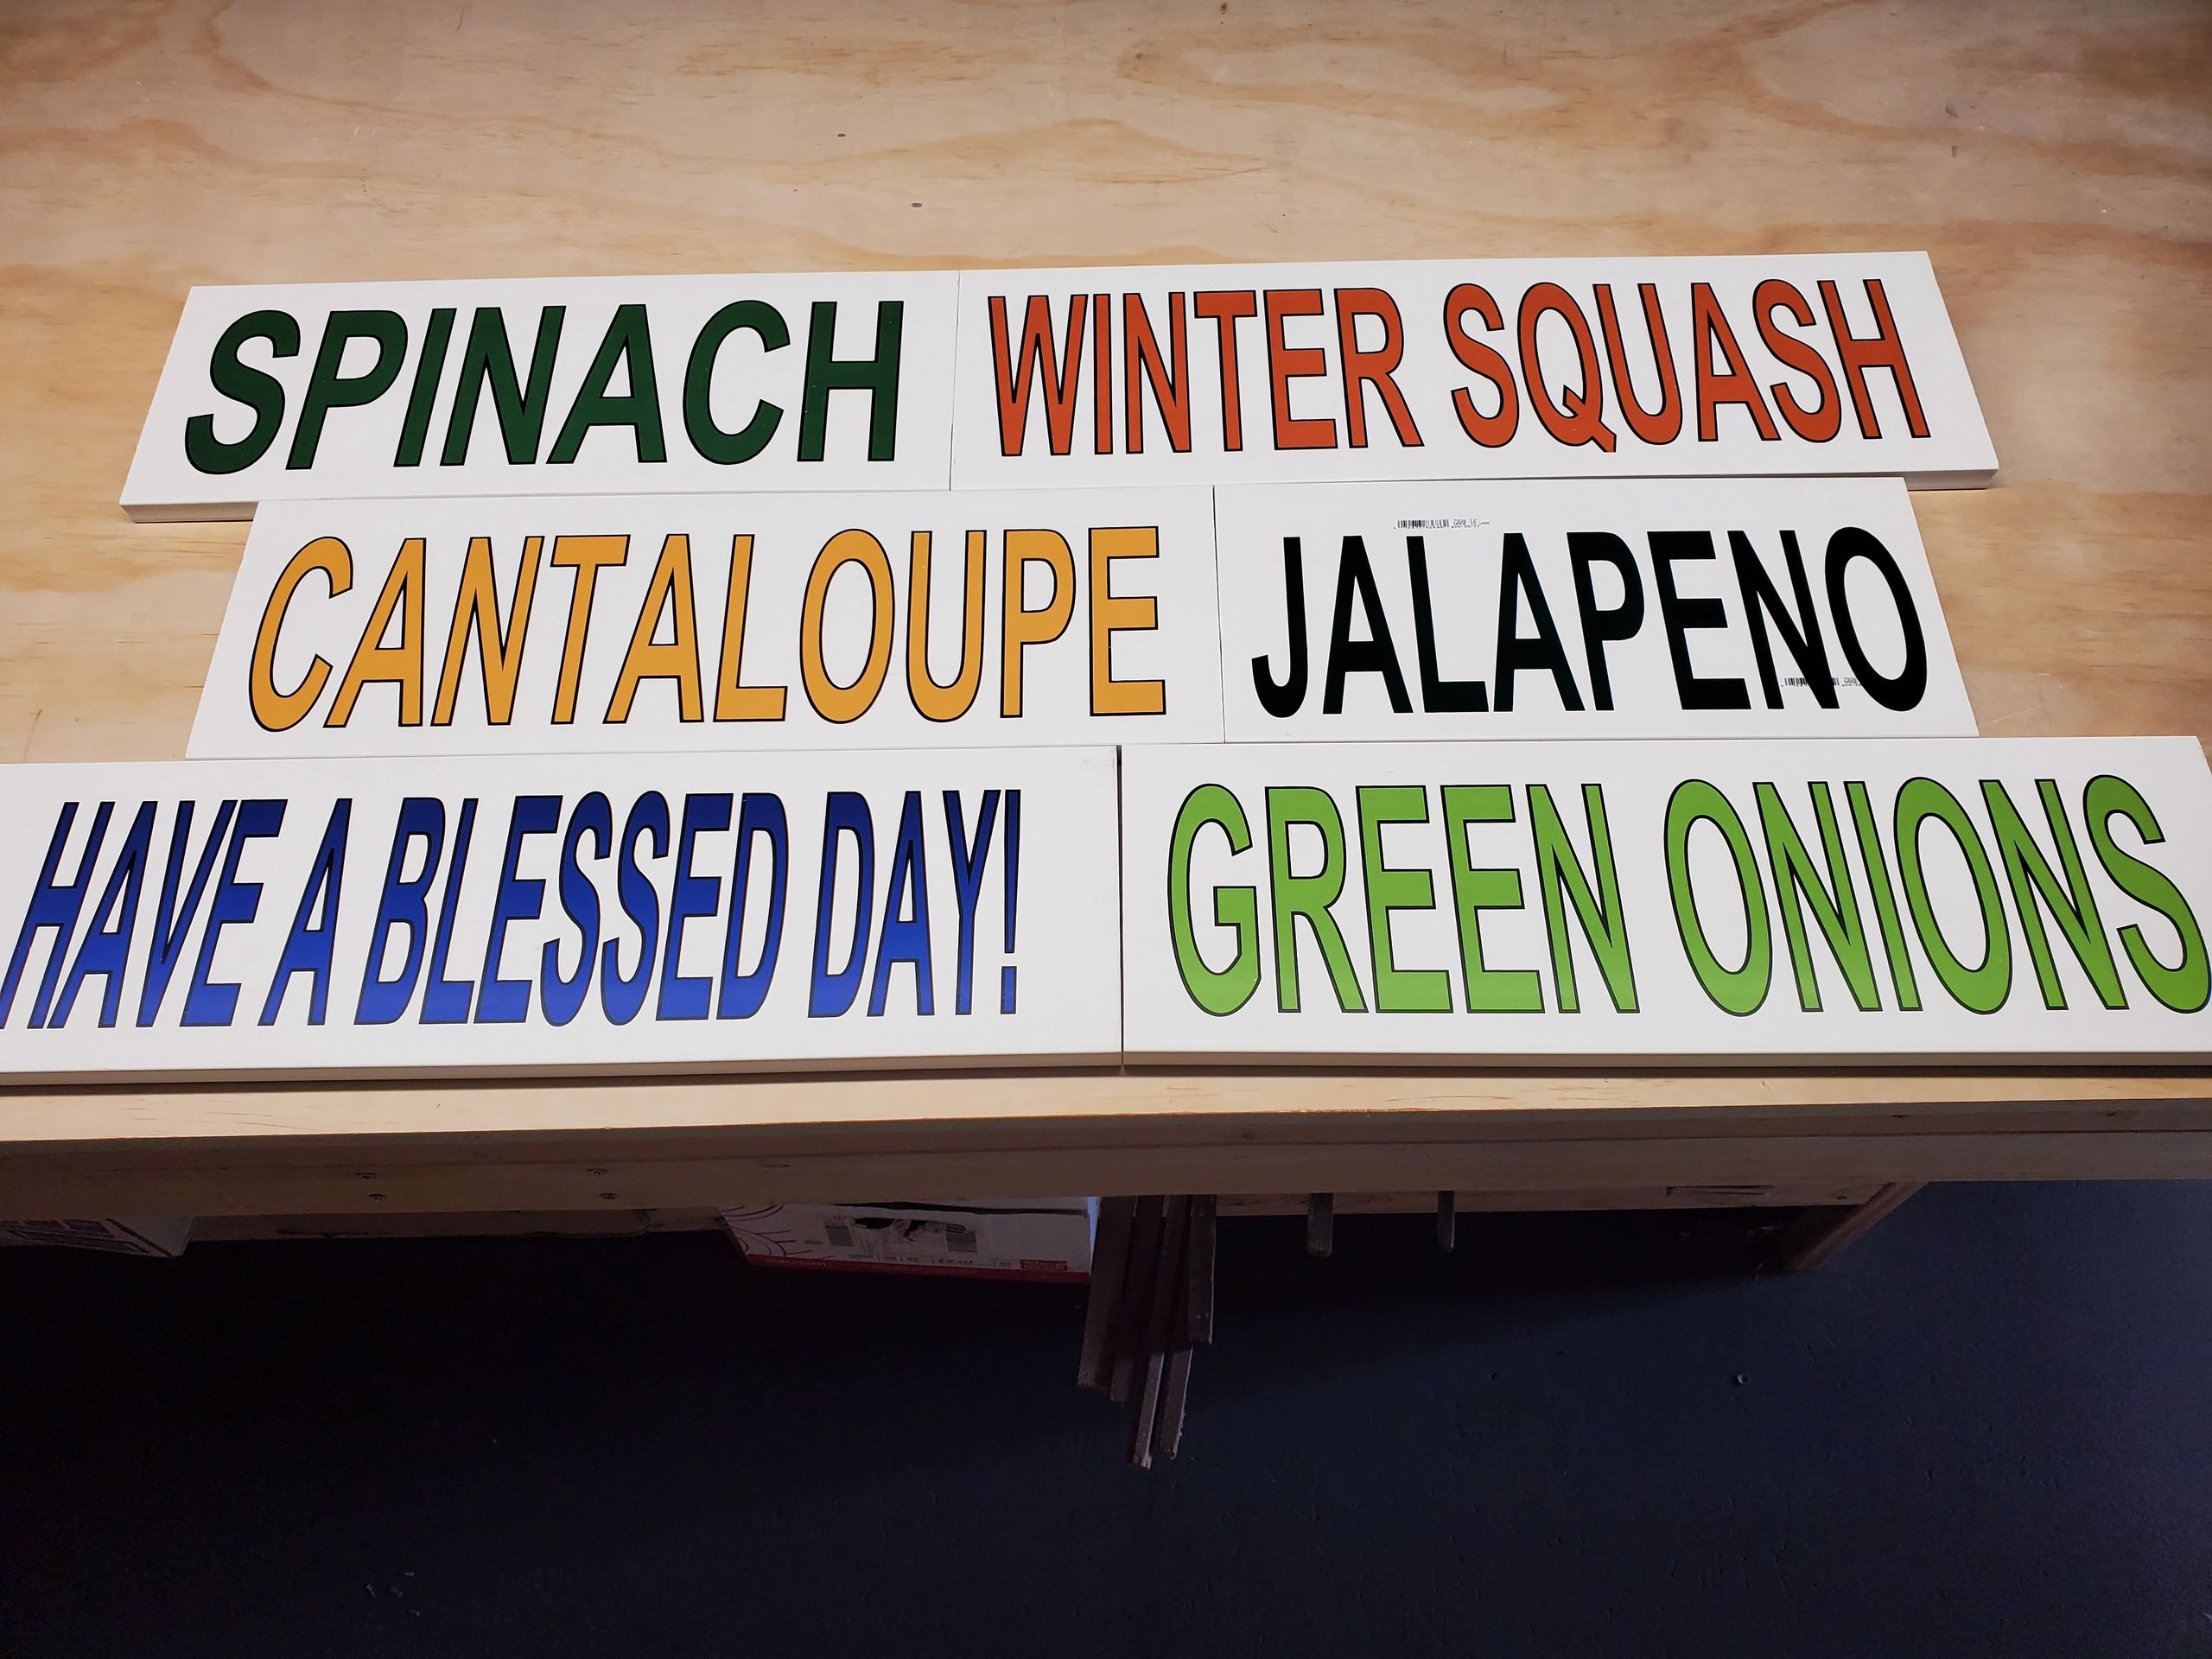 SPINACH
WINTER SQUASH
CANTALOUPE
JALAPENO
HAVE A BLESSED DAY!
GREEN ONIONS